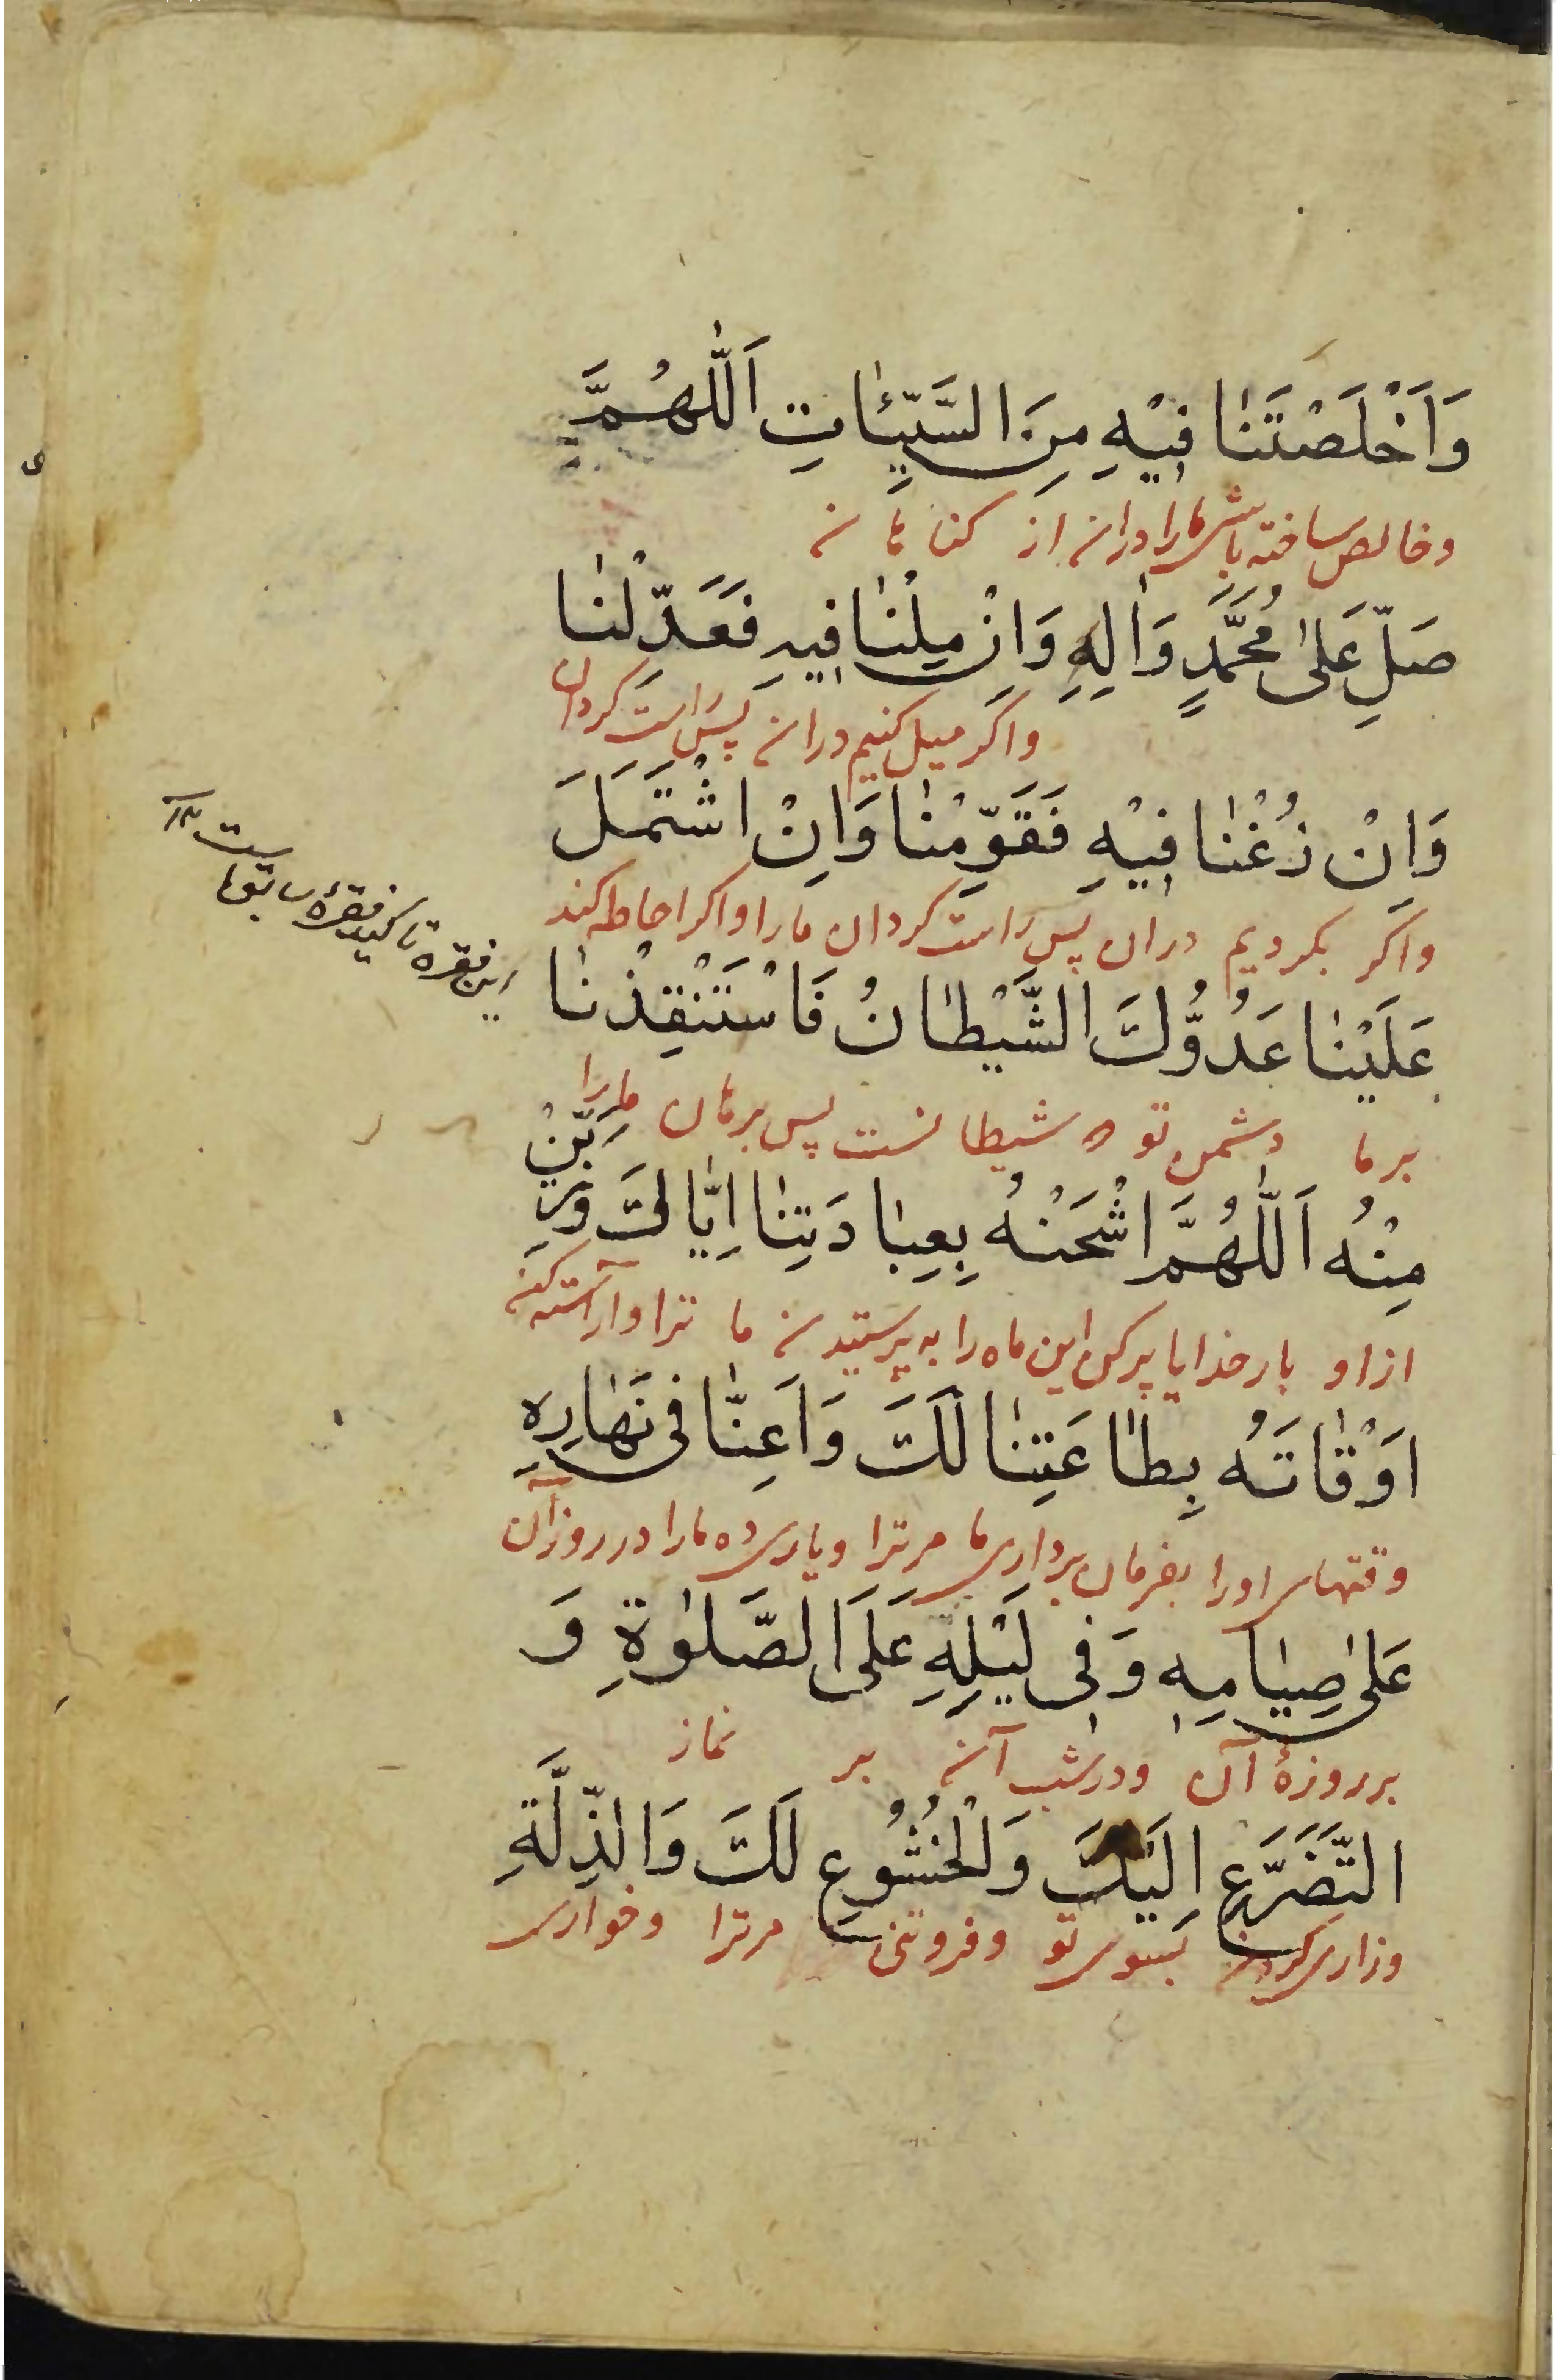 وَاَخْلَصْتَنٰا فِيْهِ مِنَ السَّيِّئٰاتِ اَللّٰهُمَّ
وخالص ساخته باشی مارا دران از کناهان
صَلِّ عَلىٰ مُحَمَّدٍ وَاٰلِهِ وَاِنْ مِلْنٰا فِيهِ فَعَدِّلْنٰا
واکر میل کنیم دران پس راست کردان
وَاِنْ زُغْنٰا فِيْهِ فَقَوِّمْنٰا وَاِنْ اشْتَمَلَ
واکر بکردیم دران پس راست کردان مارا واکر احاطه کند
این فقره تاکید فقرهٔ سابقهاست ۱۲
عَلَيْنٰا عَدُوُّكَ الشَّيْطٰانُ فَاسْتَنْقِذْنٰا
برما دشمن تو که شیطانست پس برهان مارا
مِنْهُ اَللّٰهُمَّ اشْحَنْهُ بِعِبٰادَتِنٰا اِيّٰاكَ وَزَيِّنْ
ازاو بارخدایا پرکن این ماه را به پرستیدن ما ترا وآراسته کن
اَوْقٰاتَهُ بِطٰاعَتِنٰا لَكَ وَاَعِنّٰا فى نَهٰارِهِ
وقتهای اورا بفرمان برداری ما مرترا ویاری ده مارا در روز آن
عَلىٰ صِيٰامِهِ وَفى لَيْلِهِ عَلَى الصَّلوٰةِ وَ
بر روزهٔ آن ودر شب آن بر نماز
التَّضَرُّعِ اِلَيْكَ وَالْخُشُوعِ لَكَ وَالذِّلَّةِ
وزاری کردن بسوی تو وفروتنی مرترا وخواری